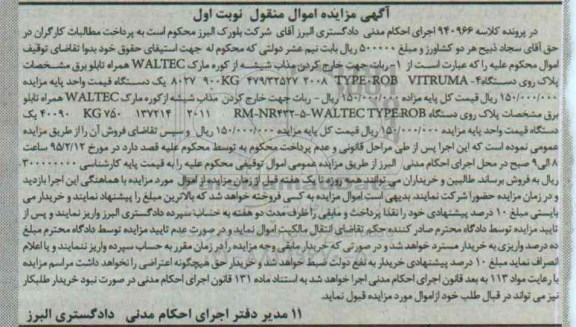 آگهی مزایده اموال منقول نوبت اول
در پرونده کلاسه ۹۴۰۹۶۶ اجرای احکام مدنی دادگستری البرز آقای شرکت بلورک البرز محکوم است به پرداخت مطالبات کارگران در
حق آقای سجاد ذبیح هر دو کشاورز و مبلغ ۵۰۰۰۰۰ ریال بابت نیم عشر دولتی که محکوم له جهت استیفای حقوق خود بدوا تقاضای توقیف
اموال محکوم علیه را که عبارت است از ۱- ربات جهت خارج کردن مذاب شیشه از کوره مارک WALTEC همراه تابلو برق مشخصات
پلاک روی دستگاه VITRUMA -۴ TYPE-ROB ۲۰۰۸ ۴۷۹۳۲۵۲۷ ۹۰۰KG ۸۰۲۷ یک دستگاه قیمت واحد پایه مزایده
۱۵۰/۰۰۰/۰۰۰ ریال قیمت کل پایه مزاده ۱۵۰/۰۰۰/۰۰۰ ریال - ربات جهت خارج کردن مذاب شیشه از کوره مارک WALTEC همراه تابلو
برق مشخصات پلاک روی دستگاه RM-NR۴۳۲-۵-WALTEC TYPEROB ۲۰۱۱ ۱۳۷۲۱۴ KG ۷۵۰ ۴۰۰۹۰ یک
دستگاه قیمت واحد پایه مزایده ۱۵۰/۰۰۰/۰۰۰ ریال قیمت کل پایه مزایده ۱۵۰/۰۰۰/۰۰۰ ریال و سپس تقاضای فروش آن را از طریق مزایده
عمومی نموده است که این اجرا پس از طی مراحل قانونی و عدم پرداخت محکوم به توسط محکوم علیه قصد دارد در مورخ ۹۵/۲/۱۲ ساعت
۸ الی ۹ صبح در محل اجرای احکام مدنی البرز از طریق مزایده عمومی اموال توقیفی محکوم علیه را به قیمت پایه کارشناسی ۳۰۰۰۰۰۰۰۰
ریال به فروش برساند. طالبین و خریداران می توانند همه روزه تا یک هفته قبل از زمان مزایده از اموال مورد مزایده با هماهنگی این اجرا بازدید
و در زمان مزایده حضورا شرکت نمایند. بدیهی است اموال مزایده به کسی فروخته خواهد شد که بالاترین مبلغ را پیشنهاد نمایند و خریدار می
بایستی مبلغ ۱۰ درصد پیشنهادی خود را نقدا پرداخت و مابقی را ظرف مدت دو هفته به حساب سپرده دادگستری البرز واریز نمایند و پس از
تایید مزایده توسط دادگاه محترم صادر کننده حکم تقاضای انتقال مالکیت اموال نماید و در صورت عدم تایید مزایده توسط دادگاه محترم مبلغ
ده درصد واریزی به خریدار مسترد خواهد شد و در صورتی که خریدار مابقی وجه مزایده را در زمان مقرر به حساب سپرده واریز ننمایند و یا اعلام
انصراف نماید مبلغ ۱۰ درصد پیشنهادی خریدار به نفع دولت ضبط خواهد شد و خریدار حق هیچگونه اعتراضی را نخواهد داشت مراسم مزایده
با رعایت مواد ۱۱۳ به بعد قانون اجرای احکام مدنی اجرا خواهد شد به استناد ماده ۱۳۱ قانون اجرای احکام مدنی در صورت نبود خریدار طلبکار
نیز می تواند در قبال طلب خود از اموال مورد مزایده قبول نماید.
۱۱ مدیر دفتر اجرای احکام مدنی دادگستری البرز